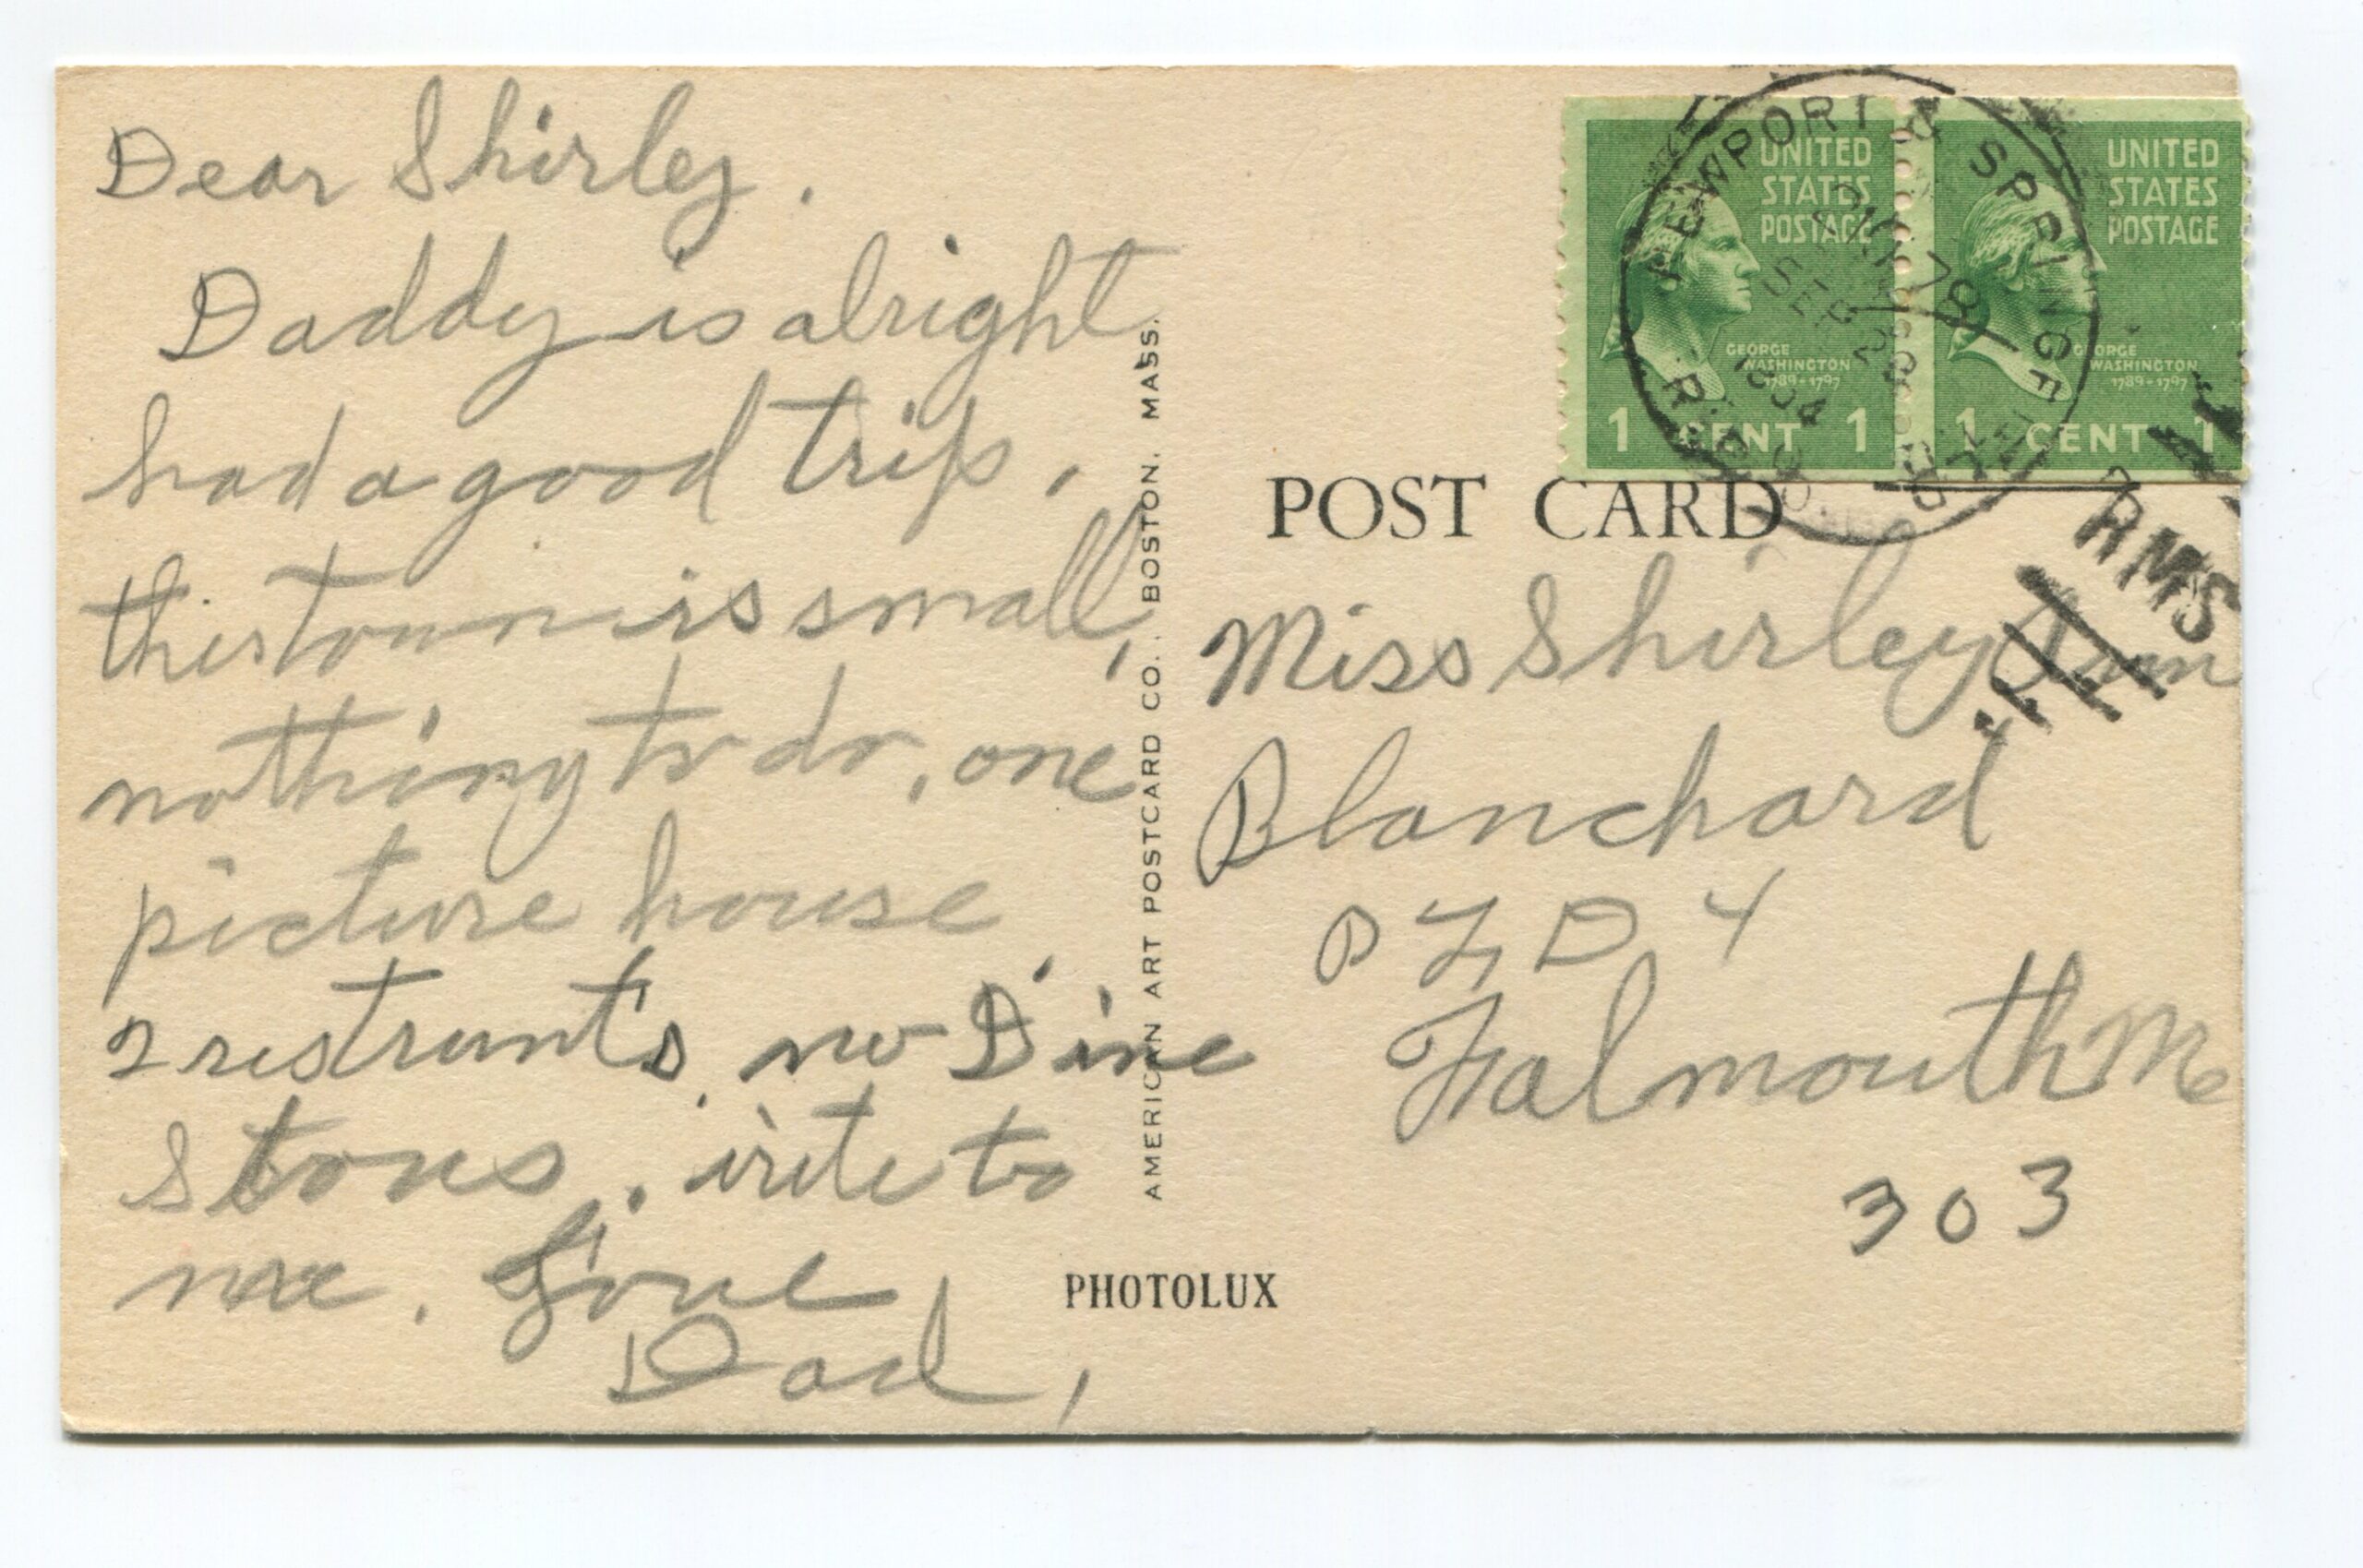 Dear Shirley.
Daddy is alright
had a good trip,
this town is small,
nothing to do, one
picture house,
2 restrunt's, no Dime
Stores. irite to
me. Love
Dad,
AMERICAN ART POSTCARD CO. BOSTON. MASS.
PHOTOLUX
POST CARD
UNITED
STATES
POSTAGE
GEORGE
WASHINGTON
1789-1797
1 CENT 1
UNITED
STATES
POSTAGE
GEORGE
WASHINGTON
1789-1797
1 CENT 1
NEWPORT & SPRINGF
R.P.O.
SEP 2
1954
RMS
Miss Shirley Ann
Blanchard
R F D 4
Falmouth Me
303